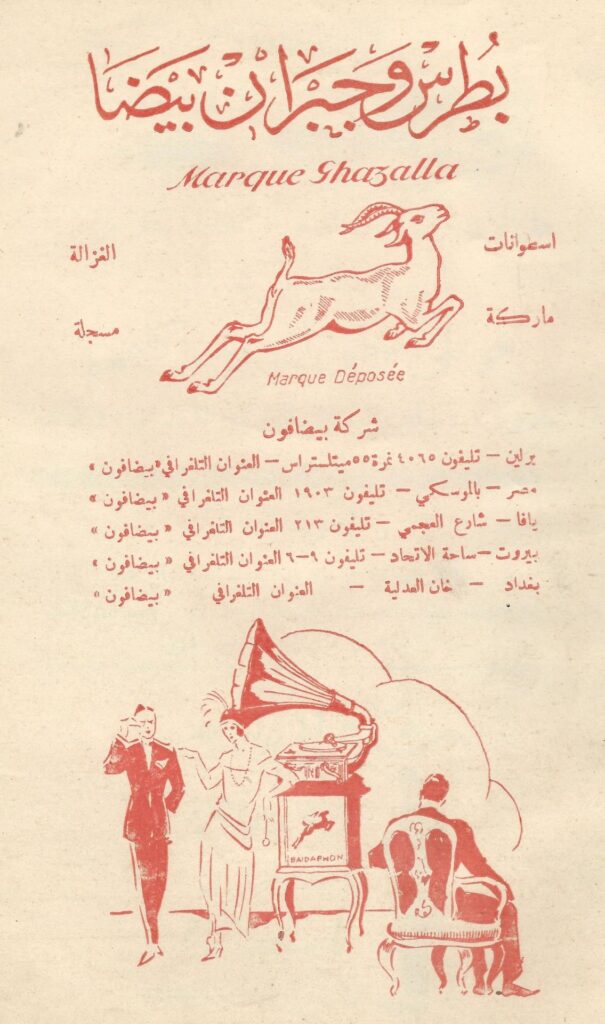 بُطرس وجَبران بَيضَا
Marque Ghazalla
اسطوانات الغزالة
ماركة مسجلة
Marque Déposée
شركة بيضافون
برلين – تليفون ٤٠٦٥ نمرة ٥٥ ميتلستراس – العنوان التلغرافي «بيضافون»
مصر – بالموسكي – تليفون ١٩٠٣ العنوان التلغرافي «بيضافون»
يافا – شارع العجمي – تليفون ٢١٣ العنوان التلغرافي «بيضافون»
بيروت – ساحة الاتحاد – تليفون ٩–٦ العنوان التلغرافي «بيضافون»
بغداد – خان العدلية – العنوان التلغرافي «بيضافون»
BAIDAPHON